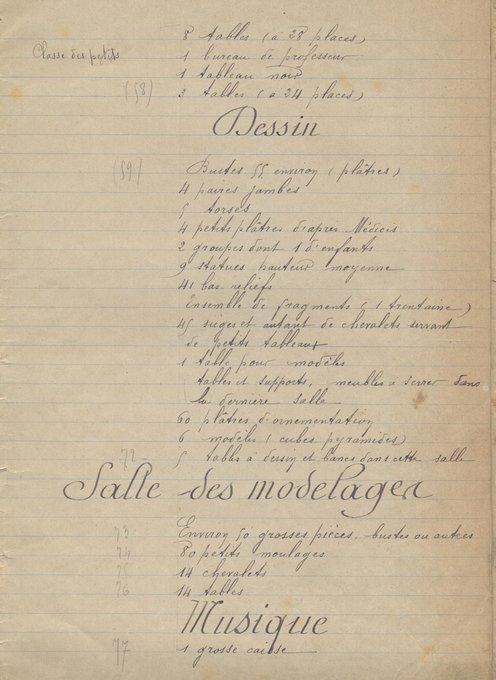 8 tables (à 28 places)
Classe des petits 1 bureau de professeur
1 tableau noir
(58) 3 tables (à 24 places)
Dessin
(59) Bustes 55 environ (plâtres)
4 paires jambes
5 torses
4 petits plâtres d'après Médicis
2 groupes dont 1 d'enfants
9 statues hauteur moyenne
41 bas reliefs
Ensemble de fragments (1 trentaine)
45 sièges et autant de chevalets servant
de petits tableaux
1 table pour modèles
tables et supports, meubles à serrer dans
la dernière salle
60 plâtres d'ornementation
6 modèles (cubes pyramides)
72 - 5 tables à dessin et bancs dans cette salle
Salle des modelages
73 Environ 50 grosses pièces, bustes ou autres
74 80 petits moulages
75 14 chevalets
76 14 tables
Musique
77 1 grosse caisse